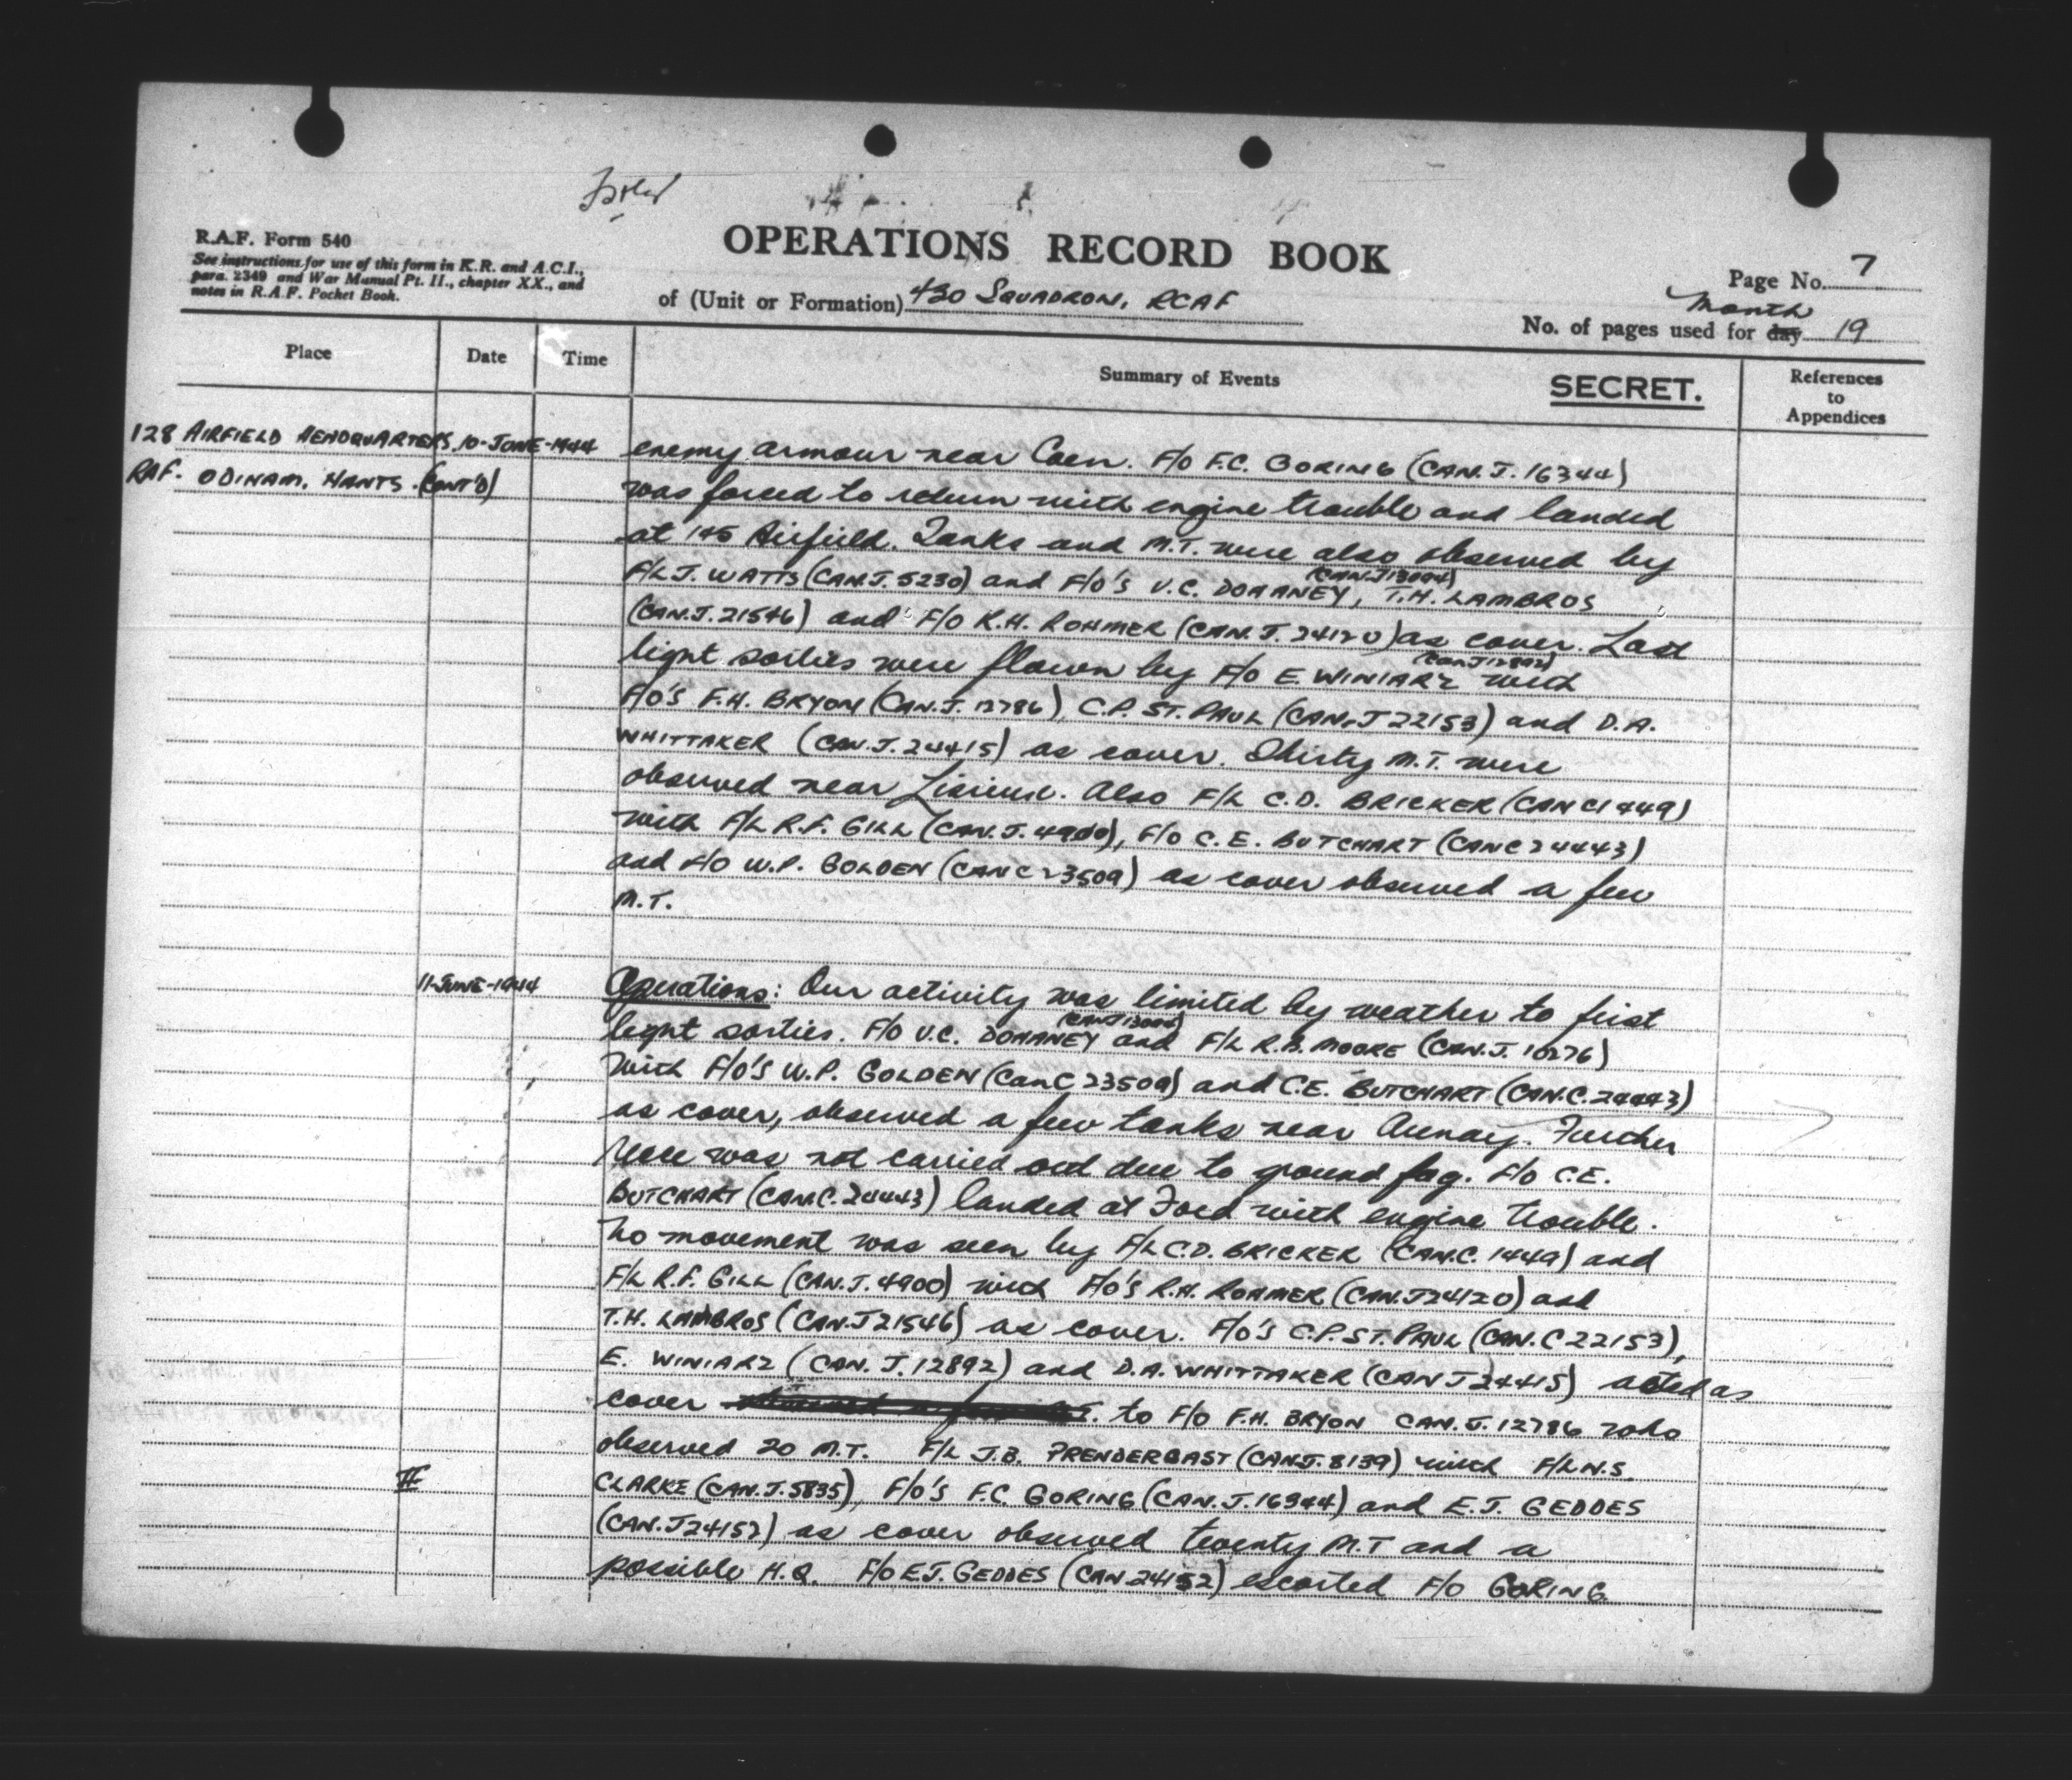 R.A.F. Form 540
See instructions for use of this form in K.R. and A.C.I.,
para. 2349 and War Manual Pt. II., chapter XX., and
notes in R.A.F. Pocket Book.
OPERATIONS RECORD BOOK
of (Unit or Formation) 430 SQUADRON, RCAF
Page No. 7
month
No. of pages used for day 19
Place Date Time Summary of Events SECRET. References to Appendices
128 AIRFIELD HEADQUARTERS, 10-JUNE-1944 enemy armour near Caen. F/O F.C. GORING (CAN.J.16344)
RAF. ODIHAM, HANTS. (CONT'D) was forced to return with engine trouble and landed
at Airfield. Tanks and M.T. were also observed by
F/L J. WATTS (CAN.J.5230) and F/O's V.C. DOHANEY (CAN.J13094), T.H. LAMBROS
(CAN.J.21546) and F/O R.H. ROHMER (CAN.J.24120) as cover. Last
light sorties were flown by F/O E. WINIARZ (CAN.J12892) with
F/O'S F.H. BRYON (CAN.J.12786), C.P. ST. PAUL (CAN.J22153) and D.A.
WHITTAKER (CAN.J.24415) as cover. Thirty M.T. were
observed near Lisieux. Also F/L C.D. BRICKER (CAN C1449)
with F/L R.F. GILL (CAN.J.4900), F/O C.E. BUTCHART (CAN C24443)
and F/O W.P. GOLDEN (CAN C23509) as cover observed a few
M.T.
11-JUNE-1944 Operations: Our activity was limited by weather to first
light sorties. F/O V.C. DOHANEY (CAN.J13094) and F/L R.B. MOORE (CAN.J.10276)
with F/O'S W.P. GOLDEN (Can C23509) and C.E. BUTCHART (CAN.C.24443)
as cover, observed a few tanks near Aunay. Further
Recce was not carried out due to ground fog. F/O C.E.
BUTCHART (CAN.C.24443) landed at Ford with engine trouble.
No movement was seen by F/L C.D. BRICKER (CAN.C.1449) and
F/L R.F. GILL (CAN.J.4900) with F/O'S R.H. ROHMER (CAN.J24120) and
T.H. LAMBROS (CAN.J21546) as cover. F/O'S C.P. ST. PAUL (CAN.C22153),
E. WINIARZ (CAN.J.12892) and D.A. WHITTAKER (CAN J24415) acted as
cover to F/O F.H. BRYON CAN.J.12786 who
observed 20 M.T. F/L J.B. PRENDERGAST (CAN.J.8139) with F/L N.S.
II CLARKE (CAN.J.5835), F/O'S F.C. GORING (CAN.J.16344) and E.J. GEDDES
(CAN.J24152) as cover observed twenty M.T and a
possible H.Q. F/O E.J. GEDDES (CAN.24152) escorted F/O GORING